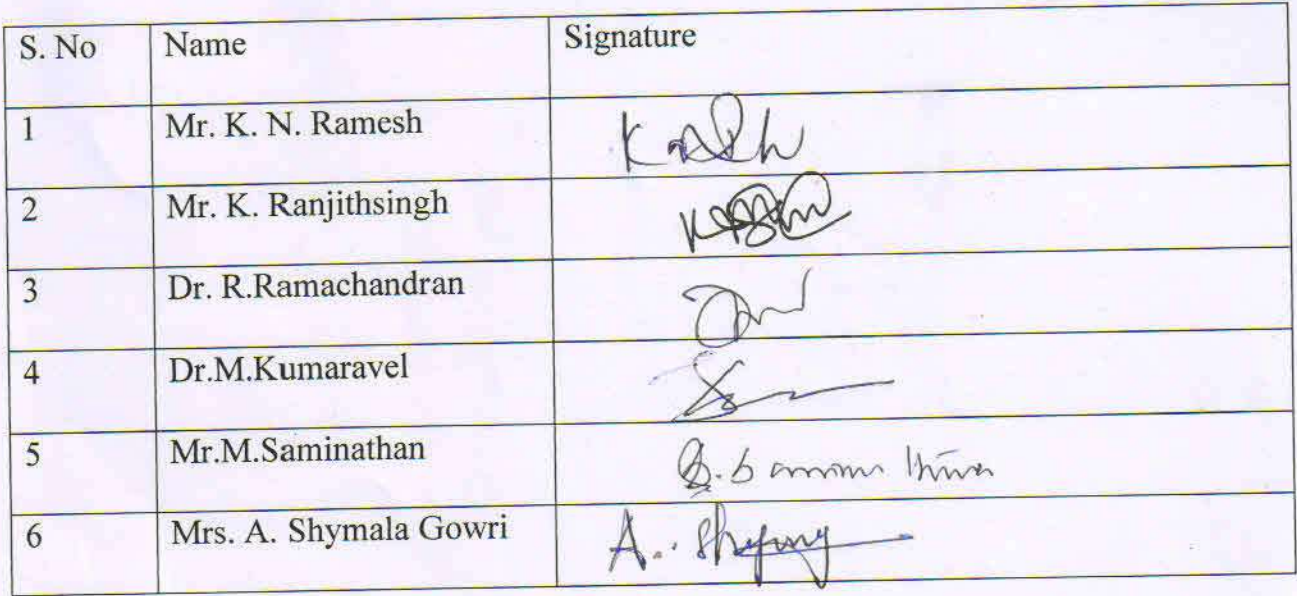 S. No Name Signature
1 Mr. K. N. Ramesh
2 Mr. K. Ranjithsingh
3 Dr. R.Ramachandran
4 Dr.M.Kumaravel
5 Mr.M.Saminathan
6 Mrs. A. Shymala Gowri